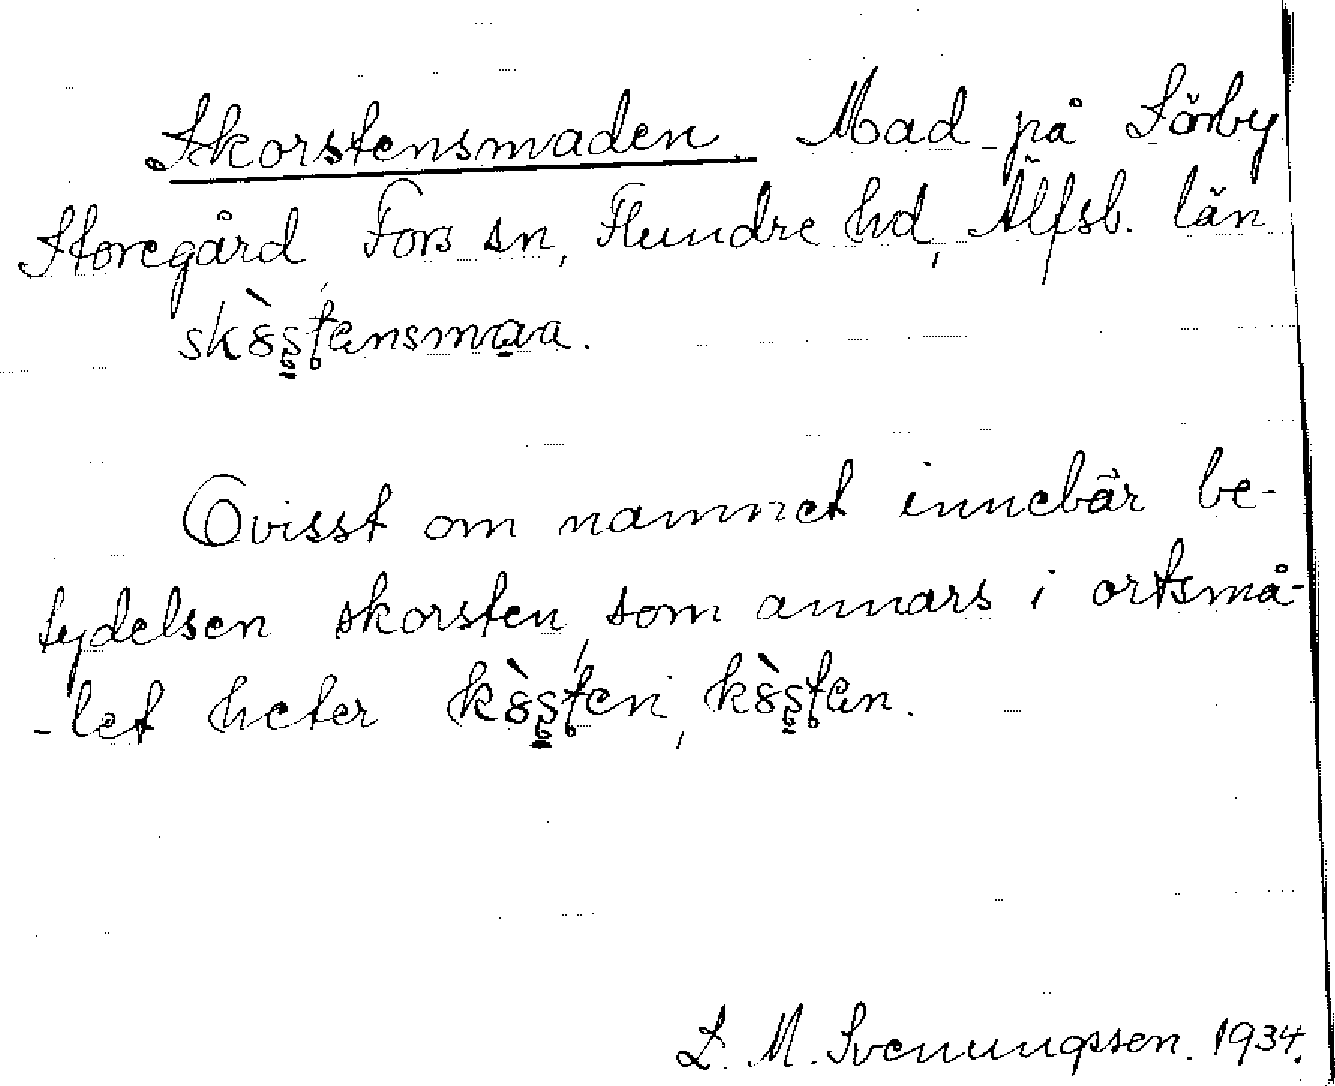 Skorstensmaden. Mad på Sörby
Storegård Fors sn, Flundre hd, Älfsb. län
skòştensmaa.
Ovisst om namnet innebär be-
tydelsen skorsten, som annars i ortsmå-
-let heter kòşten, kòştan.
L. M. Svenungsson. 1934.